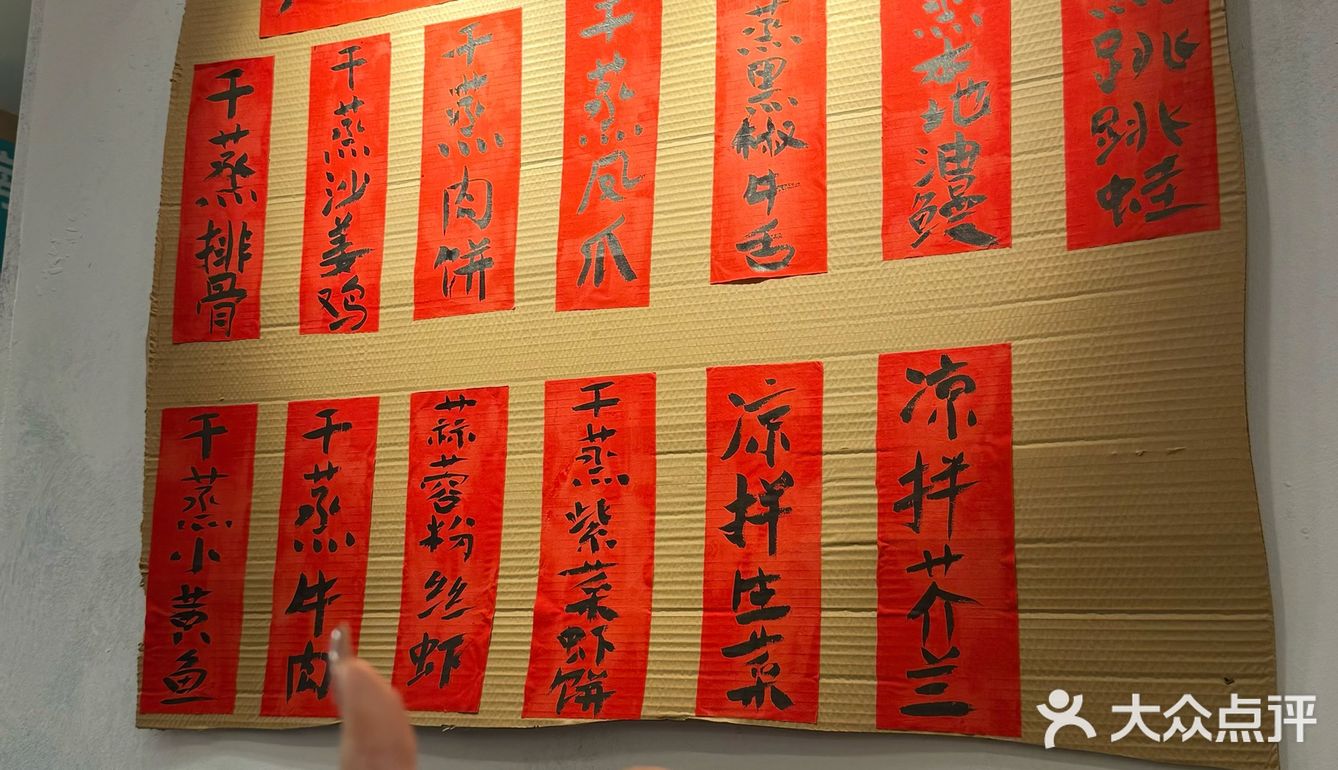 干蒸排骨
干蒸沙姜鸡
干蒸肉饼
干蒸凤爪
蒸黑椒牛舌
蒸本地油鳗
跳跳蛙
干蒸小黄鱼
干蒸牛肉
蒜蓉粉丝虾
干蒸紫菜虾饼
凉拌生菜
凉拌芥兰
大众点评